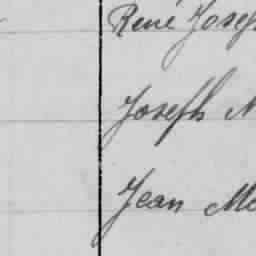 René Joseph
Joseph
Jean